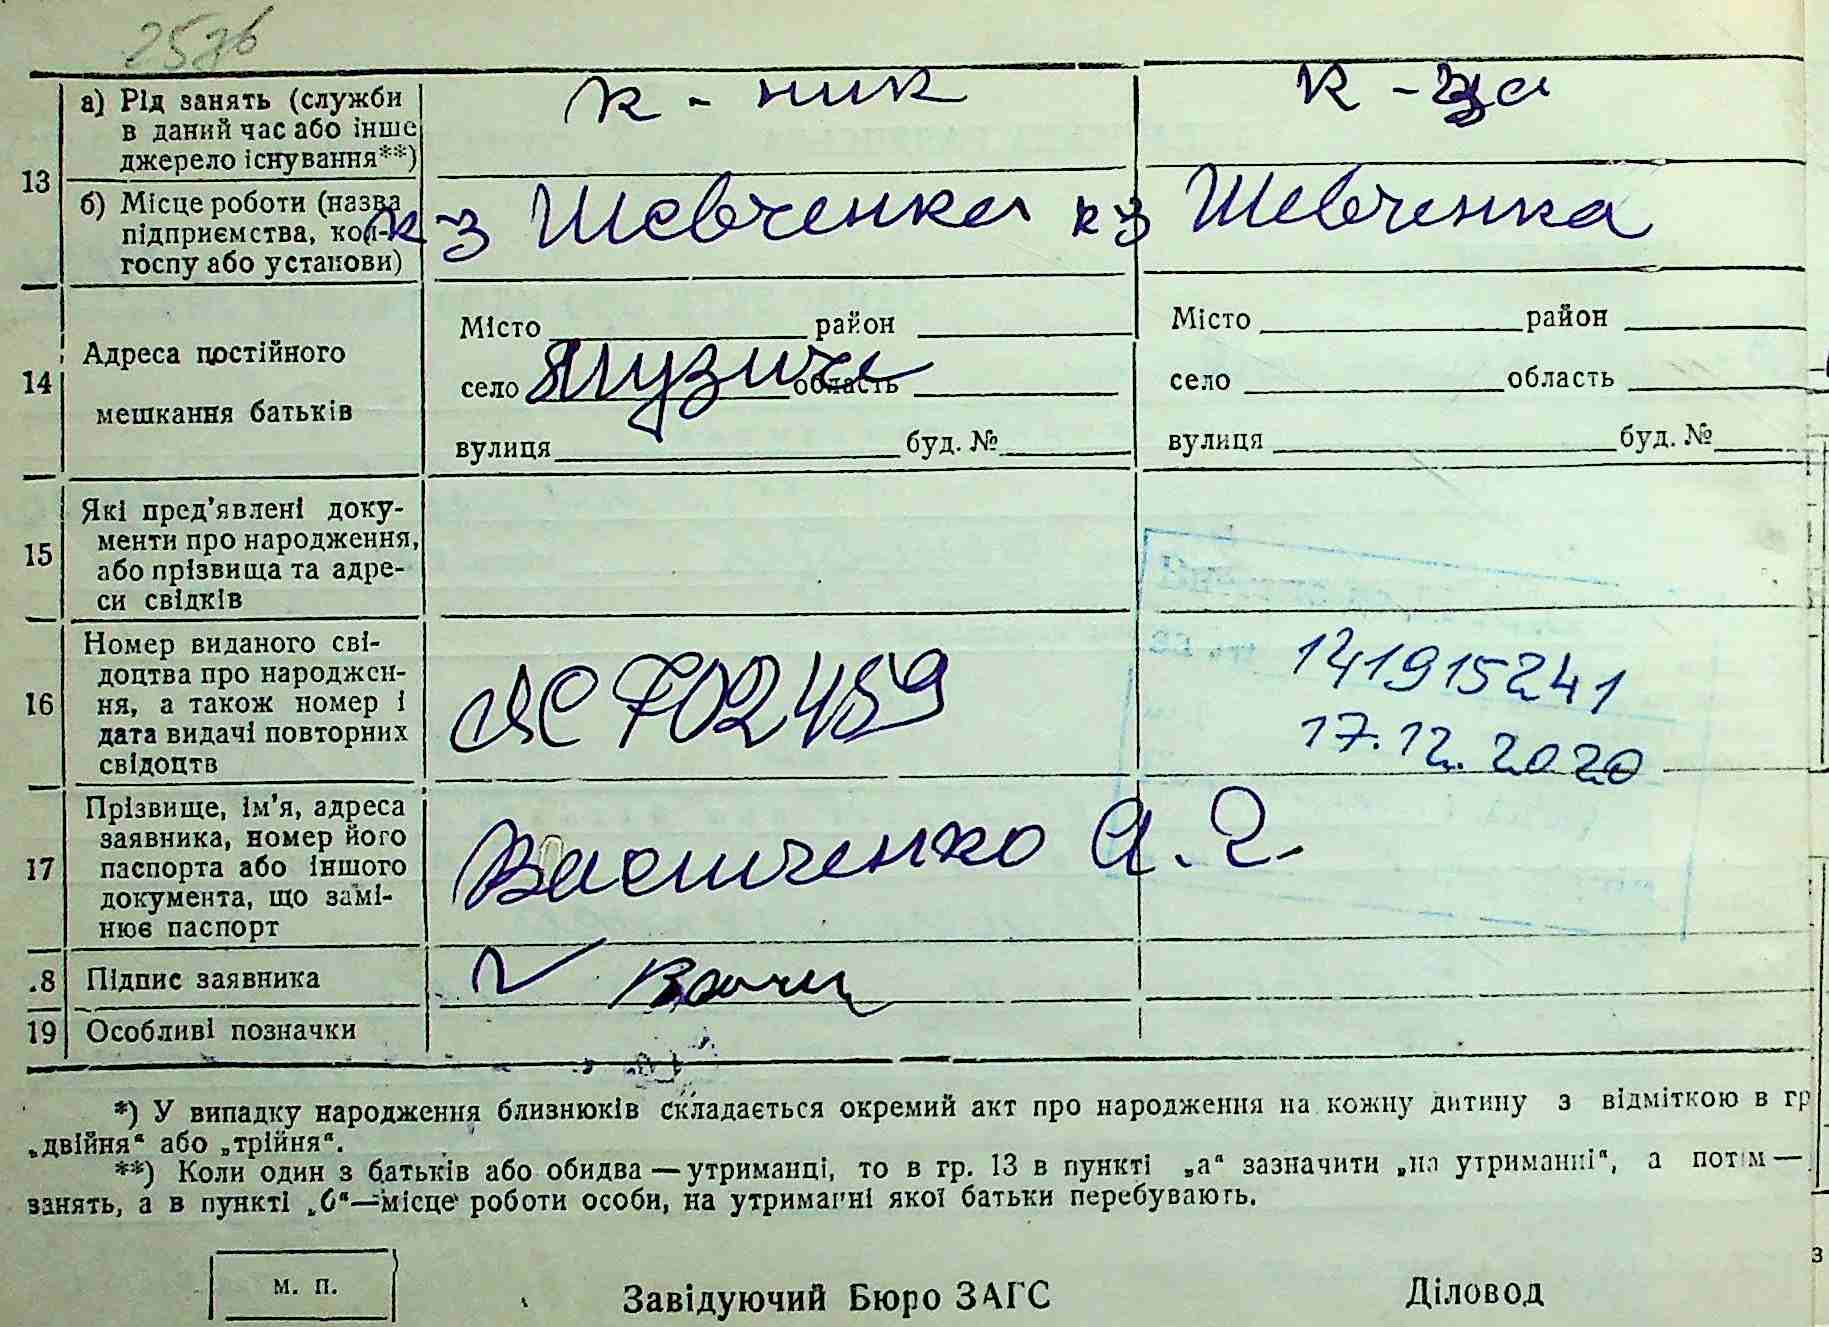 25дб
13 а) Рід занять (служби
в даний час або інше
джерело існування**)
к - ник
к - ца
б) Місце роботи (назва
підприємства, кол-
госпу або установи)
к-з Шевченка
к-з Шевченка
14 Адреса постійного
мешкання батьків
Місто район
село Музичі область
вулиця буд. №
Місто район
село область
вулиця буд. №
15 Які пред'явлені доку-
менти про народження,
або прізвища та адре-
си свідків
16 Номер виданого сві-
доцтва про народжен-
ня, а також номер і
дата видачі повторних
свідоцтв
ЯС 702459
141915241
17.12.2020
17 Прізвище, ім'я, адреса
заявника, номер його
паспорта або іншого
документа, що замі-
нює паспорт
Васильченко Я. Г.
.8 Підпис заявника
19 Особливі позначки
*) У випадку народження близнюків складається окремий акт про народження на кожну дитину з відміткою в гр
„двійня“ або „трійня“.
**) Коли один з батьків або обидва — утриманці, то в гр. 13 в пункті „а“ зазначити „на утриманні“, а потім —
занять, а в пункті „б“ — місце роботи особи, на утриманні якої батьки перебувають.
м. п.
Завідуючий Бюро ЗАГС
Діловод